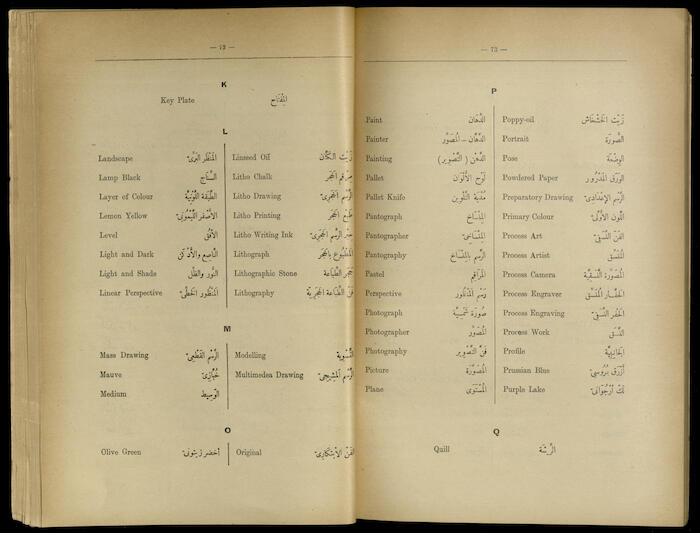 — 72 —
K
Key Plate المِفْتَاح
L
Landscape المَنظَر البَرِّىّ
Lamp Black السُّنَّاج
Layer of Colour الطَّبَقَة اللَّوْنِيَّة
Lemon Yellow الأَصْفَر اللَّيْمُونِىّ
Level الأُفُق
Light and Dark النَّاصِع والأَدْكَن
Light and Shade النُّور والظِّل
Linear Perspective المَنْظُور الخَطِّىّ
Linseed Oil زَيْت الكَتَّان
Litho Chalk مِرْقَم الحَجَر
Litho Drawing الرَّسْم الحَجَرِىّ
Litho Printing طَبْع الحَجَر
Litho Writing Ink حِبْر الرَّسْم الحَجَرِىّ
Lithograph المَطْبُوع بِالحَجَر
Lithographic Stone حَجَر الطِّبَاعَة
Lithography فَنّ الطِّبَاعَة الحَجَرِيَّة
M
Mass Drawing الرَّسْم القِطْعِىّ
Mauve خُبَّازِىّ
Medium الوَسِيط
Modelling التَّسْوِيَة
Multimedea Drawing الرَّسْم
O
Olive Green أَخضَر زيتُونِىّ
Original الفَنّ الاِبْتِكَارِىّ
— 73 —
P
Paint الدِّهَان
Painter الدَّهَّان – المُصَوِّر
Painting الدَّهْن ( التَّصْوِير )
Pallet لَوْح الأَلْوَان
Pallet Knife التَّلْوِين
Pantograph المِنْسَاخ
Pantographer المِنْسَاخِىّ
Pantography الرَّسْم بِالمِنْسَاخ
Pastel المَرَاقِيم
Perspective رَسْم المَنْظُور
Photograph صُورَة شَمْسِيَّة
Photographer المُصَوِّر
Photography فَنّ التَّصْوِير
Picture المُصَوَّرَة
Plane المُسْتَوَى
Poppy-oil زَيْت الخَشْخَاش
Portrait الصُّورَة
Pose الوِضْعَة
Powdered Paper الوَرَق المَذْرُور
Preparatory Drawing الرَّسْم الإِعْدَادِىّ
Primary Colour اللَّوْن الأَوَّلِىّ
Process Art الفَنّ النَّسَقِىّ
Process Artist المُنَسِّق
Process Camera المُصَوِّرَة النَّسَقِيَّة
Process Engraver الحَفَّار المُنَسِّق
Process Engraving الحَفْر النَّسَقِىّ
Process Work النَّسَق
Profile الجَانِبِيَّة
Prussian Blue أَزْرَق بُرُوسِىّ
Purple Lake لَكّ أُرْجُوَانِىّ
Q
Quill الرِّيشَة